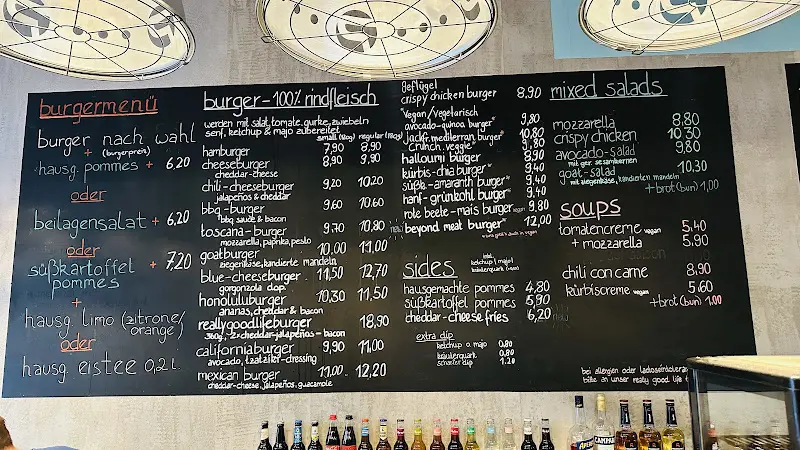 burgermenü
burger nach wahl
+ (burgerpreis)
hausg. pommes + 6,20
oder
beilagensalat + 6,20
oder
süßkartoffel pommes + 7,20
+
hausg. limo (zitrone/
orange)
oder
hausg. eistee 0,2l
burger - 100% rindfleisch
werden mit salat, tomate, gurke, zwiebeln
senf, ketchup & majo zubereitet
small (90g) regular (180g)
hamburger 7,90 8,90
cheeseburger 8,90 9,90
cheddar-cheese
chili-cheeseburger 9,20 10,20
jalapeños & cheddar
bbq-burger 9,60 10,60
bbq sauce & bacon
toscana-burger 9,70 10,80
mozzarella, paprika, pesto
goatburger 10,00 11,00
ziegenkäse, kandierte mandeln
blue-cheeseburger 11,50 12,70
gorgonzola dop.
honoluluburger 10,30 11,50
ananas, cheddar & bacon
reallygoodlifeburger 18,90
360g, 2x cheddar-jalapeños-bacon
californiaburger 9,90 11,00
avocado, tzatziki-dressing
mexican burger 11,00 12,20
cheddar-cheese, jalapeños, guacamole
geflügel
crispy chicken burger 8,90
vegan/vegetarisch
avocado-quinoa burger* 9,80
jackfr. mediterran burger* 10,80
crunch. veggie* 9,80
halloumi burger 8,90
kürbis-chia burger* 9,40
süßk-amaranth burger* 9,40
hanf-grünkohl burger* 9,40
rote beete-mais burger vegan 9,80
beyond meat burger* 12,00
sides
inkl. ketchup / majo / kräuterquark
hausgemachte pommes 4,80
süßkartoffel pommes 5,90
cheddar-cheese fries 6,20
extra dip
ketchup o. majo 0.80
kräuterquark 0.80
scharfer dip 1.20
mixed salads
mozzarella 8.80
crispy chicken 10.30
avocado-salad 9.80
mit ger. sesamkernen
goat-salad 10,30
mit ziegenkäse, kandierten mandeln
+brot (bun) 1,00
soups
tomatencreme vegan 5.40
+ mozzarella 5.90
chili con carne 8.90
kürbiscreme vegan 5.60
+brot (bun) 1.00
bei allergien oder
bitte an unser really good life